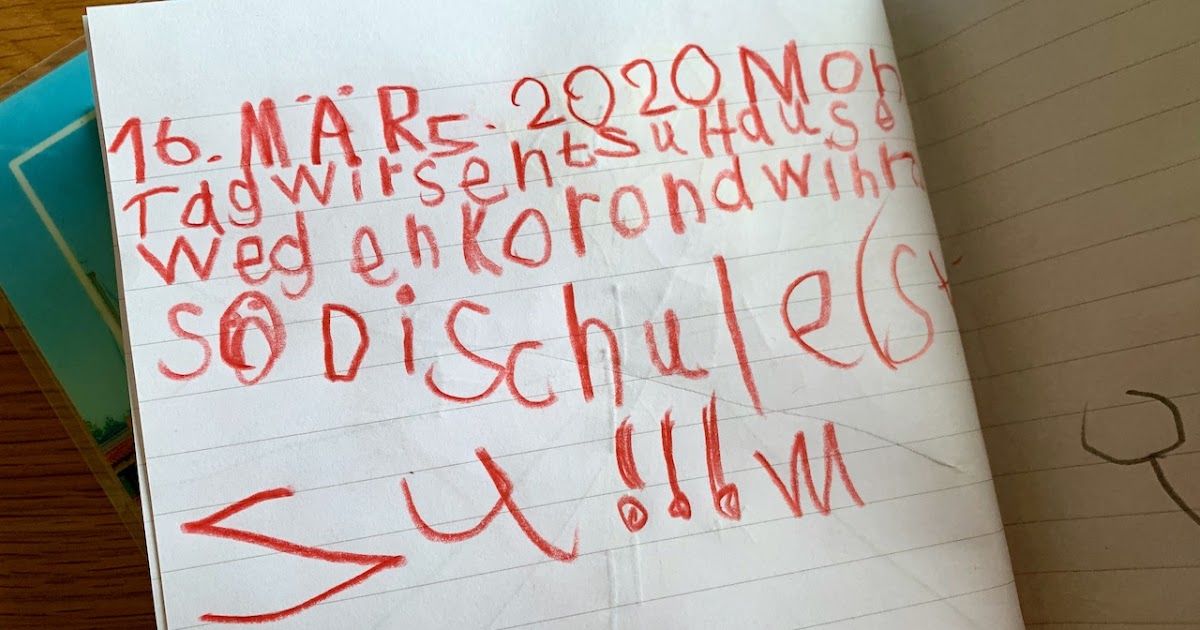 16. MÄRS. 2020 Mon
Tag wir sent su Hause
weg en korona wihr
SO Di Schule
SU!!!